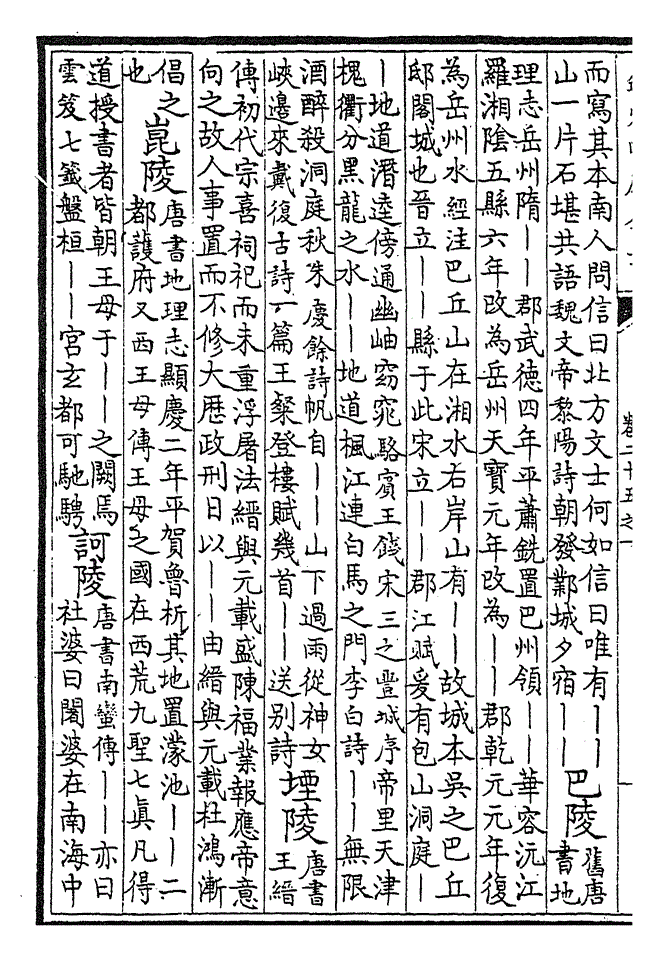 卷二十五之一
而寫其本南人問信曰北方文士何如信曰唯有丨丨
山一片石堪共語魏文帝黎陽詩朝發鄴城夕宿丨丨
巴陵
舊唐
書地
理志岳州隋丨丨郡武德四年平蕭銑置巴州領丨丨華容沅江
羅湘陰五縣六年改為岳州天寶元年改為丨丨郡乾元元年復
為岳州水經注巴丘山在湘水右岸山有丨丨故城本吳之巴丘
邸閣城也晉立丨丨縣于此宋立丨丨郡江賦爰有包山洞庭丨
丨地道潛逵傍通幽岫窈窕駱賓王餞宋三之豐城序帝里天津
槐衢分黑龍之水丨丨地道楓江連白馬之門李白詩丨丨無限
酒醉殺洞庭秋朱慶餘詩帆自丨丨山下過雨從神女
峽邊來戴復古詩一篇王粲登樓賦幾首丨丨送別詩
堙陵
唐書
王縉
傳初代宗喜祠祀而未重浮屠法縉與元載盛陳福業報應帝意
向之故人事置而不修大歷政刑日以丨丨由縉與元載杜鴻漸
倡之
也
崑陵
唐書地理志顯慶二年平賀魯析其地置濛池丨丨二
都護府又西王母傳王母之國在西荒九聖七真凡得
道授書者皆朝王母于丨丨之闕焉
雲笈七籤盤桓丨丨宮玄都可馳騁
訶陵
唐書南蠻傳丨丨亦曰
社婆曰闍婆在南海中